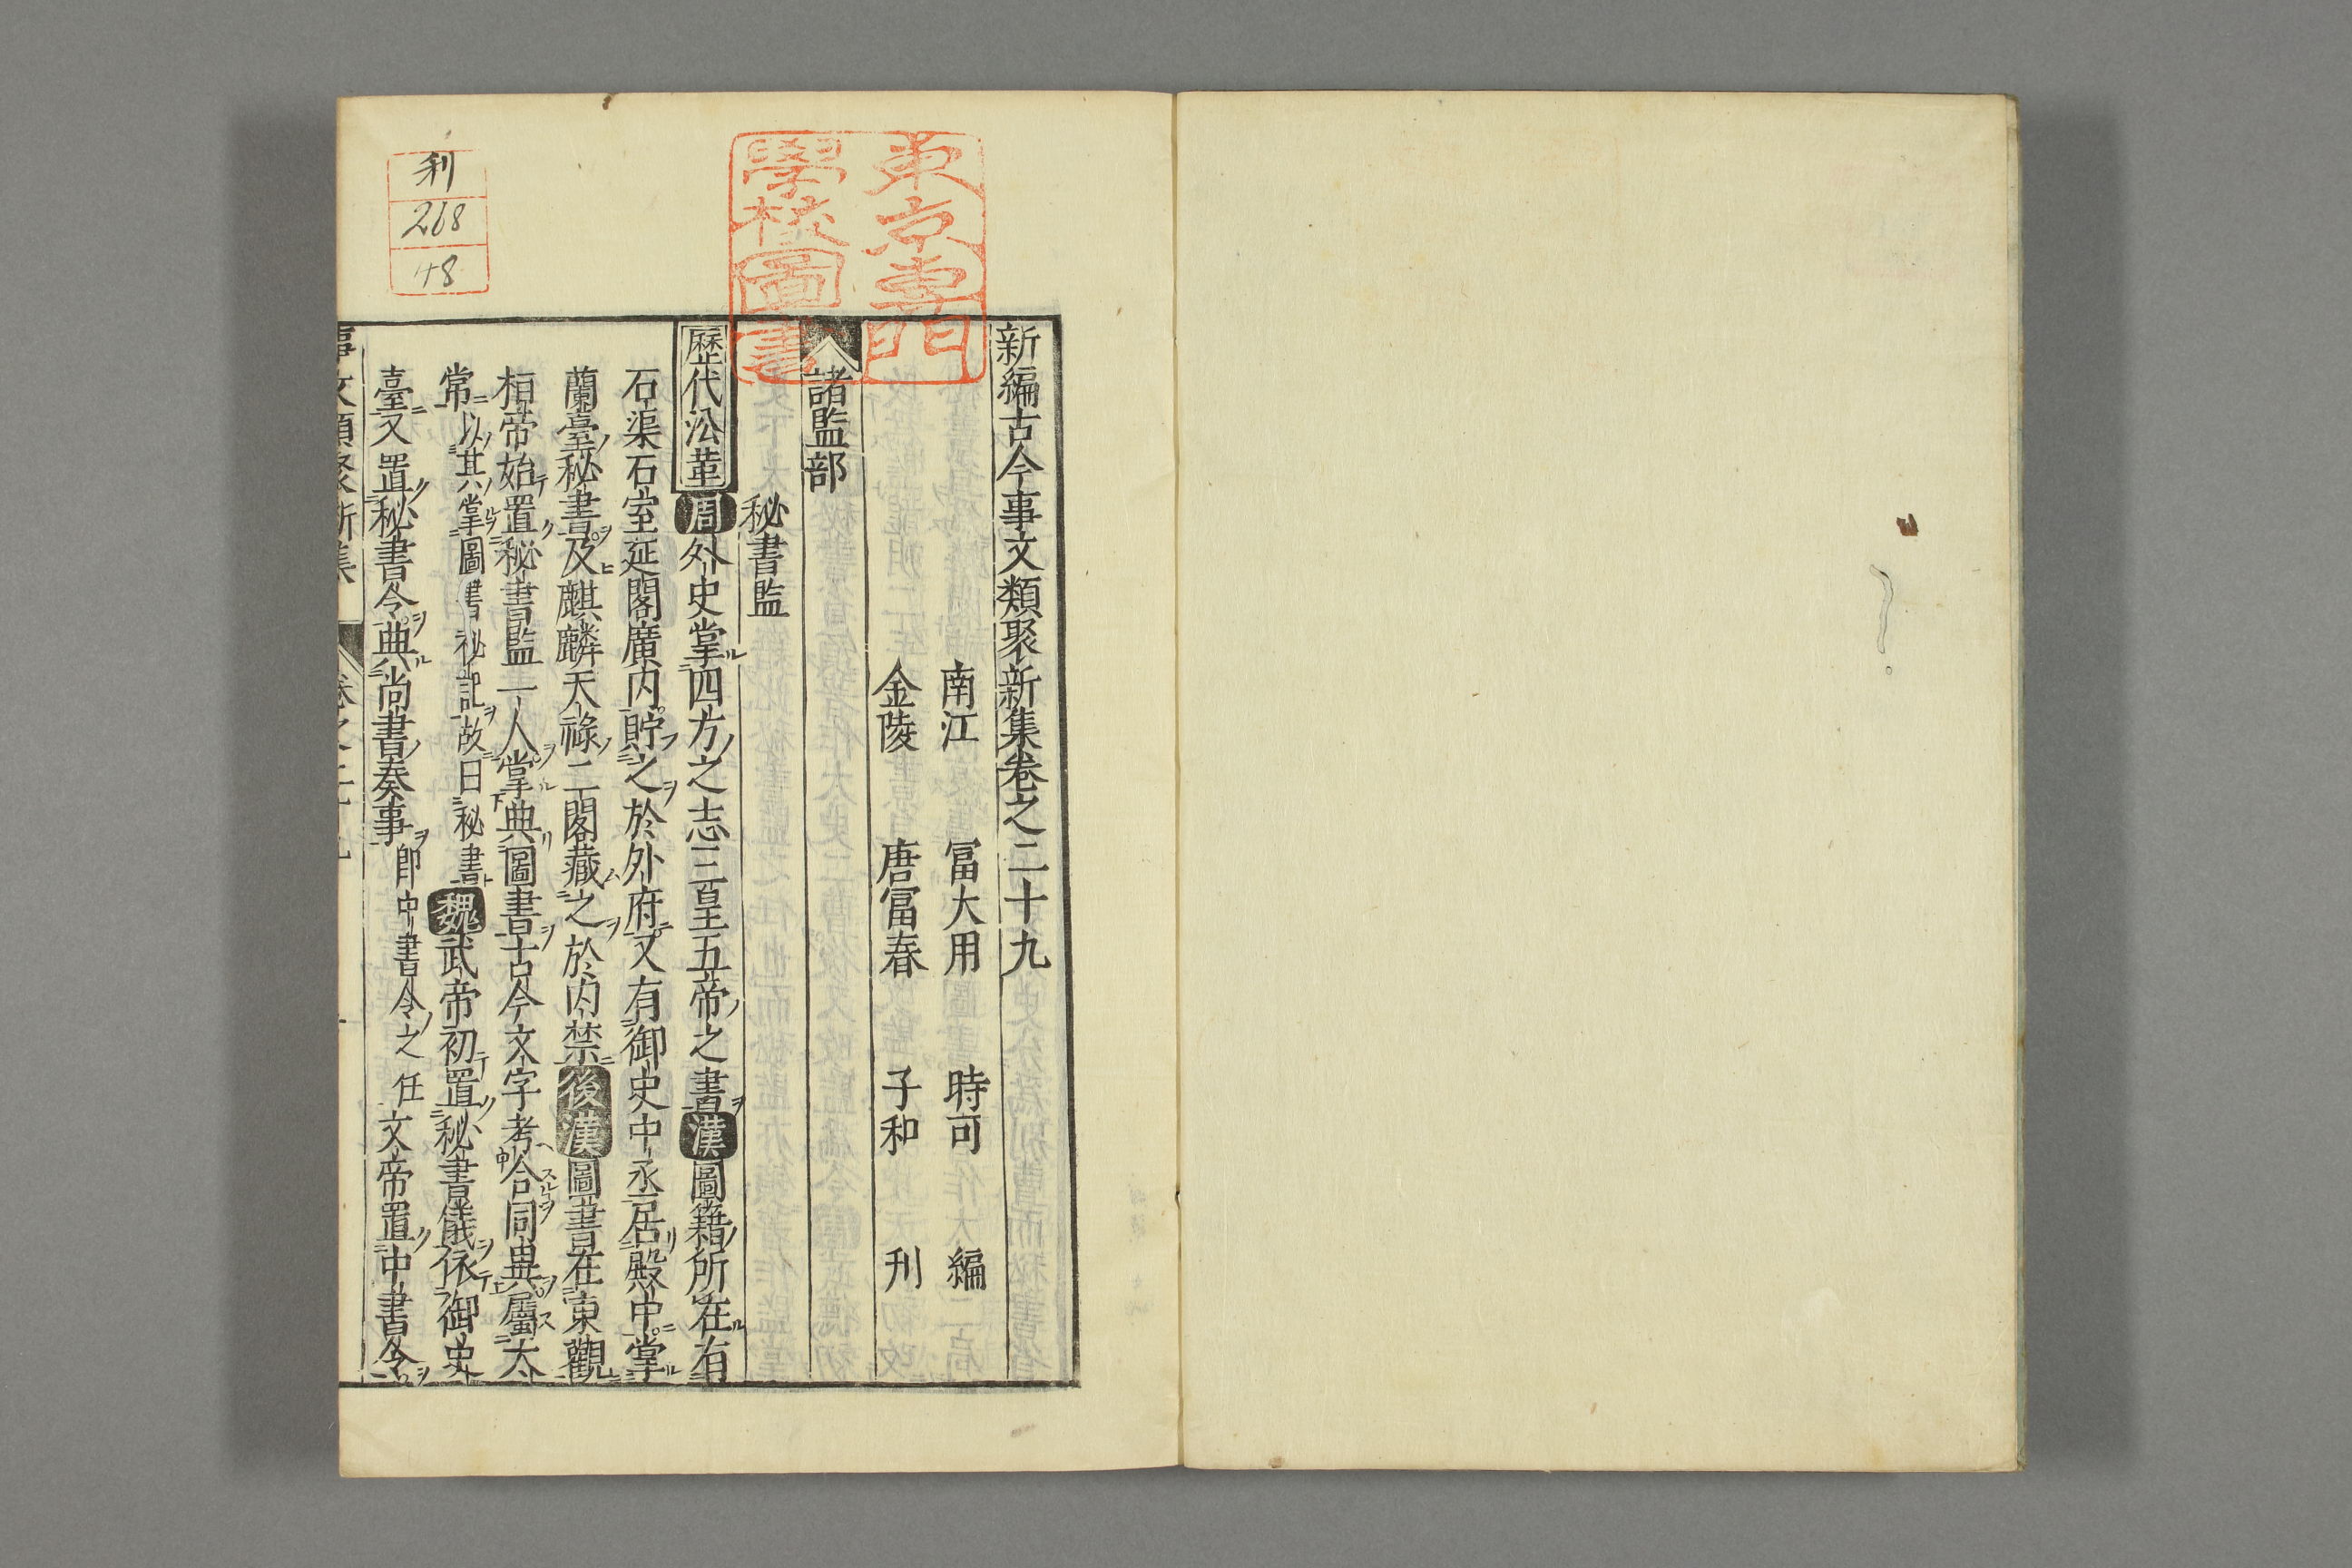 新編古今事文類聚新集卷之二十九
南江 冨大用 時可 編
金陵 唐冨春 子和 刋
諸監部
秘書監
歷代㳂革 周外史掌四方之志三皇五帝之書漢圖籍所在有
石渠石室延閣廣内貯之於外府又有御史中丞居殿中掌
蘭臺秘書及麒麟天祿二閣藏之於内禁後漢圖書在東觀
桓帝始置秘書監一人掌典圖書古今文字考合同異屬太
常以其掌圖書秘記故曰秘書魏武帝初置秘書儀依御史
臺又置秘書令典尚書奏事即中書令之任文帝置中書令
東京專門
學校圖書
利
268
48